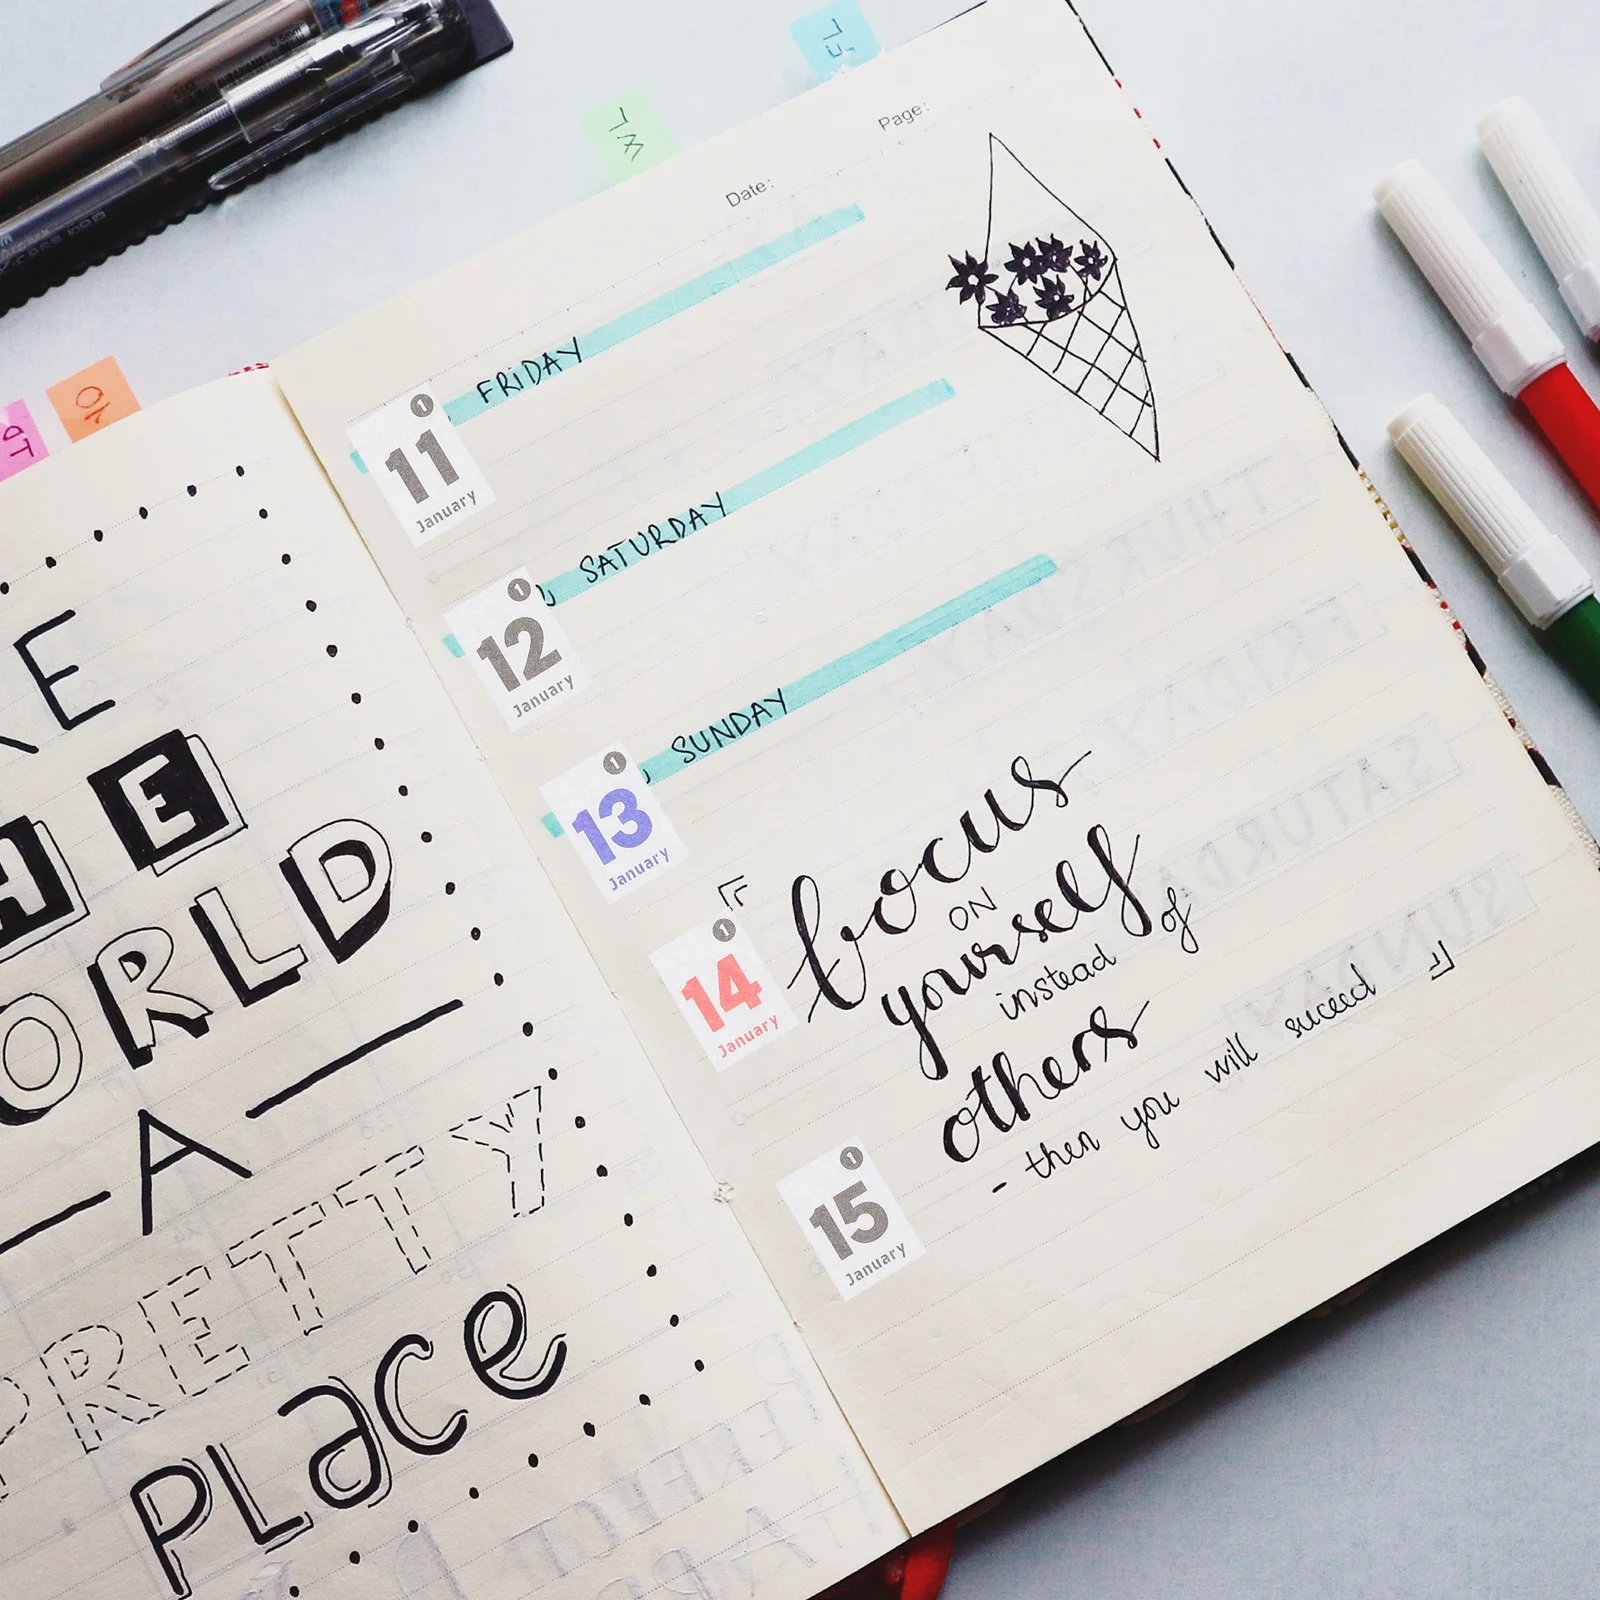 KE
HE
ORLD
A
PRETTY
PLace
Date:
Page:
1
11
January
FRiDAY
1
12
January
SATURDAY
1
13
January
SUNDAY
1
14
January
focus
ON
yourself
instead of
others
- then you will suceed
1
15
January